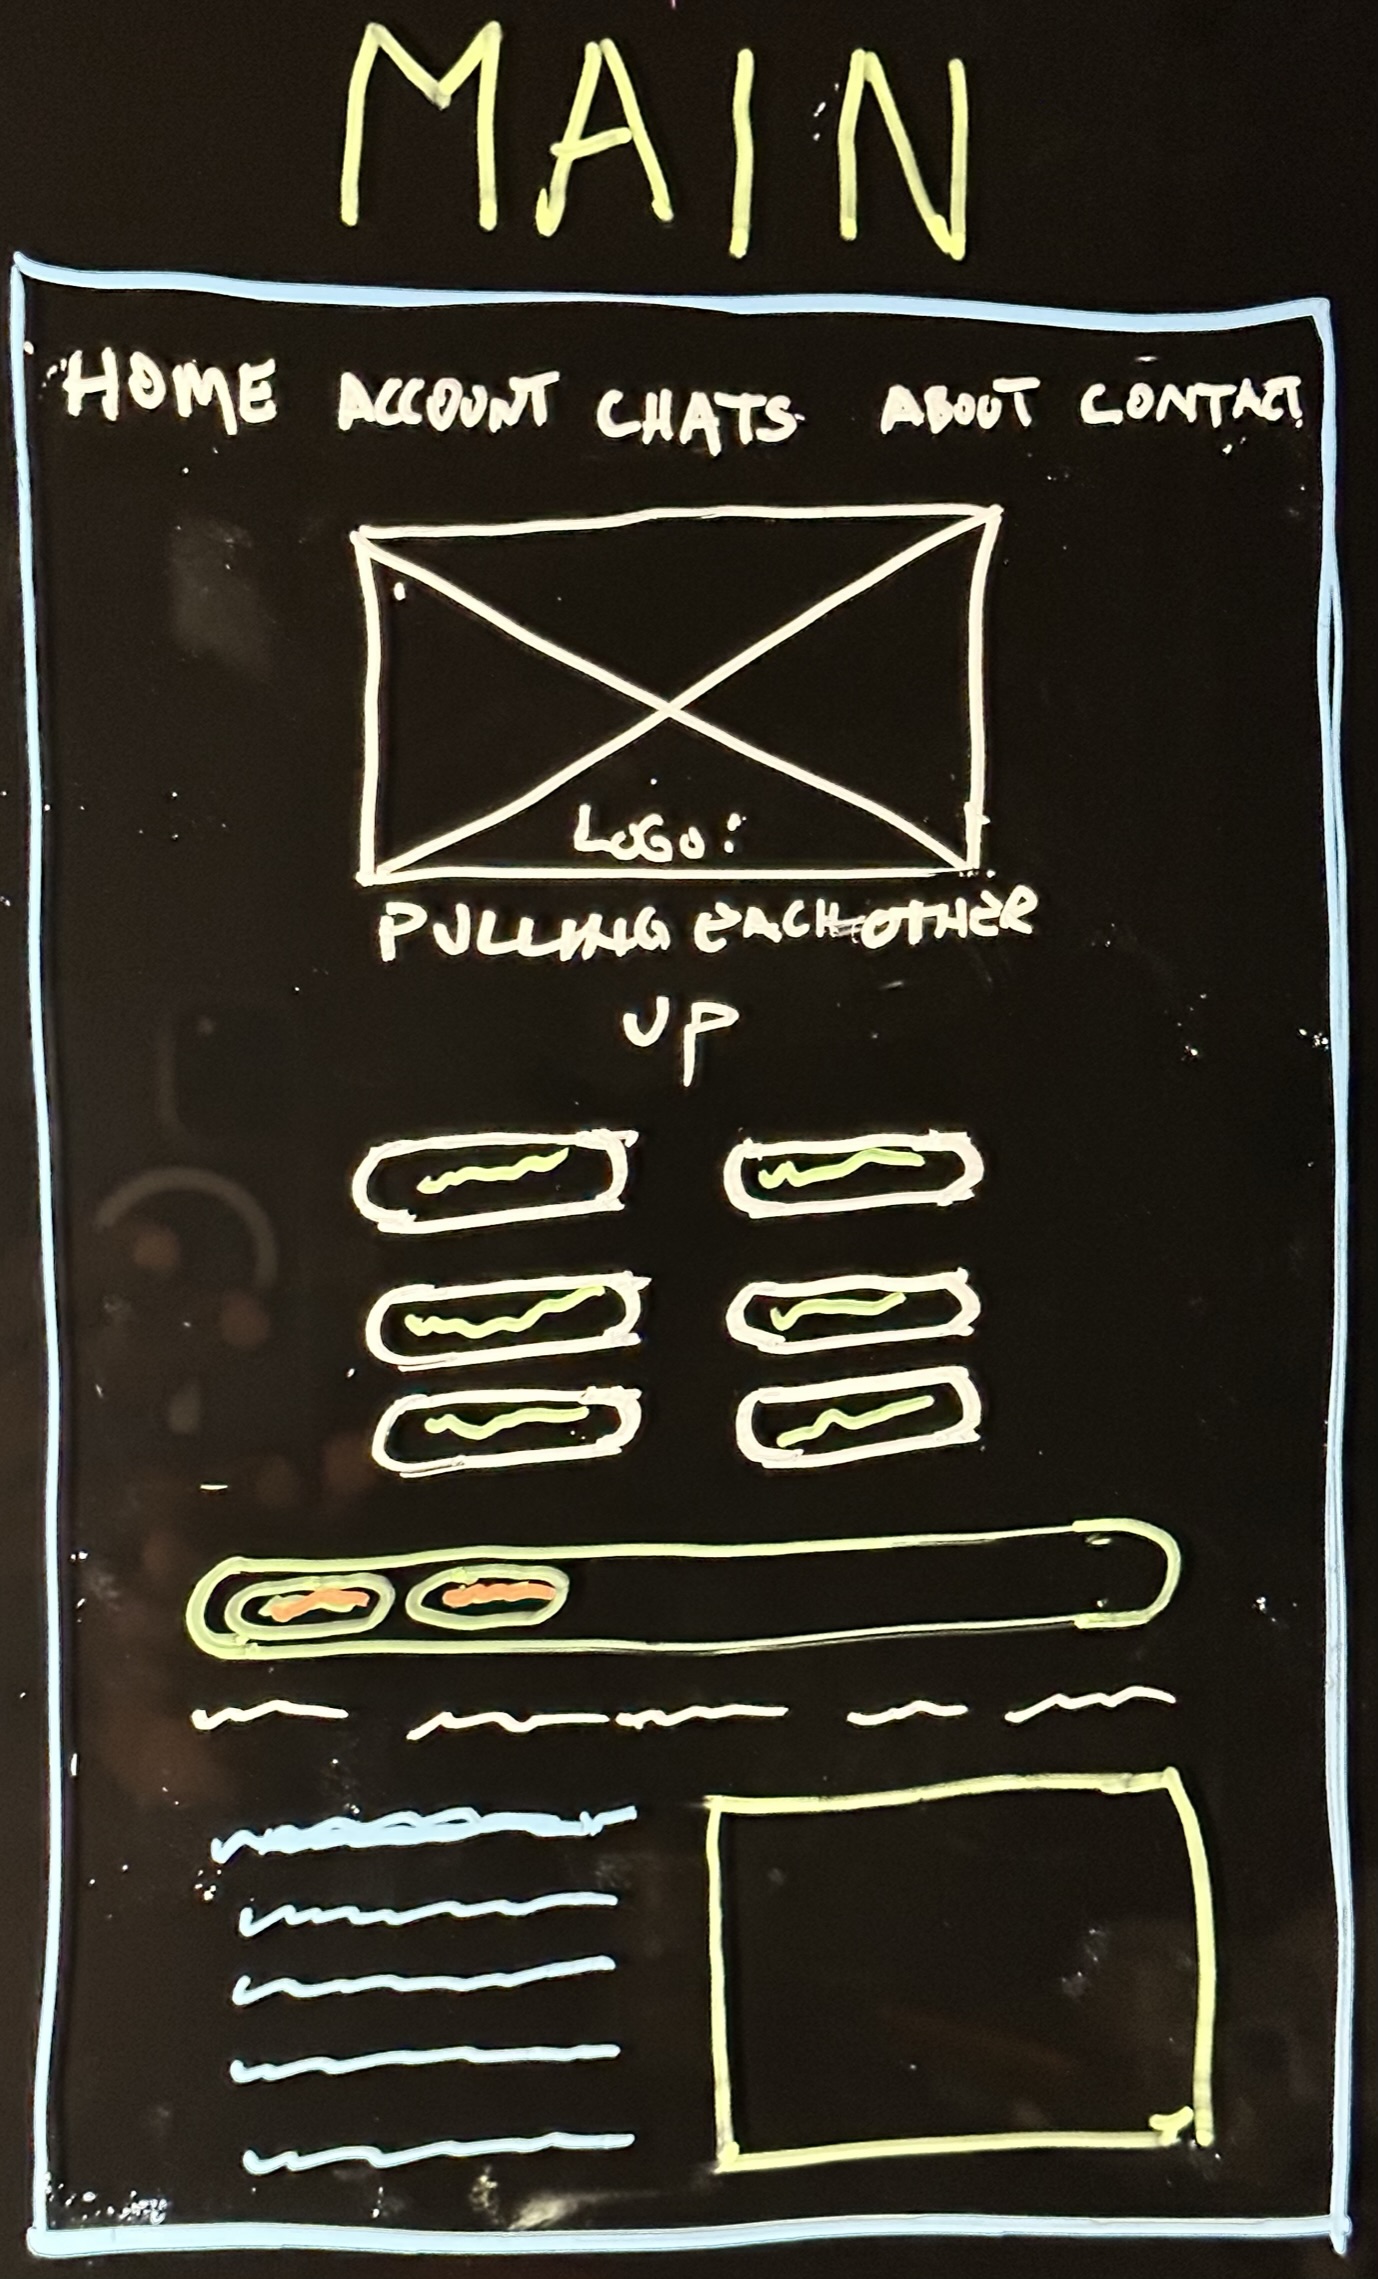 MAIN
HOME ACCOUNT CHATS ABOUT CONTACT
LOGO:
PULLING EACH OTHER
UP